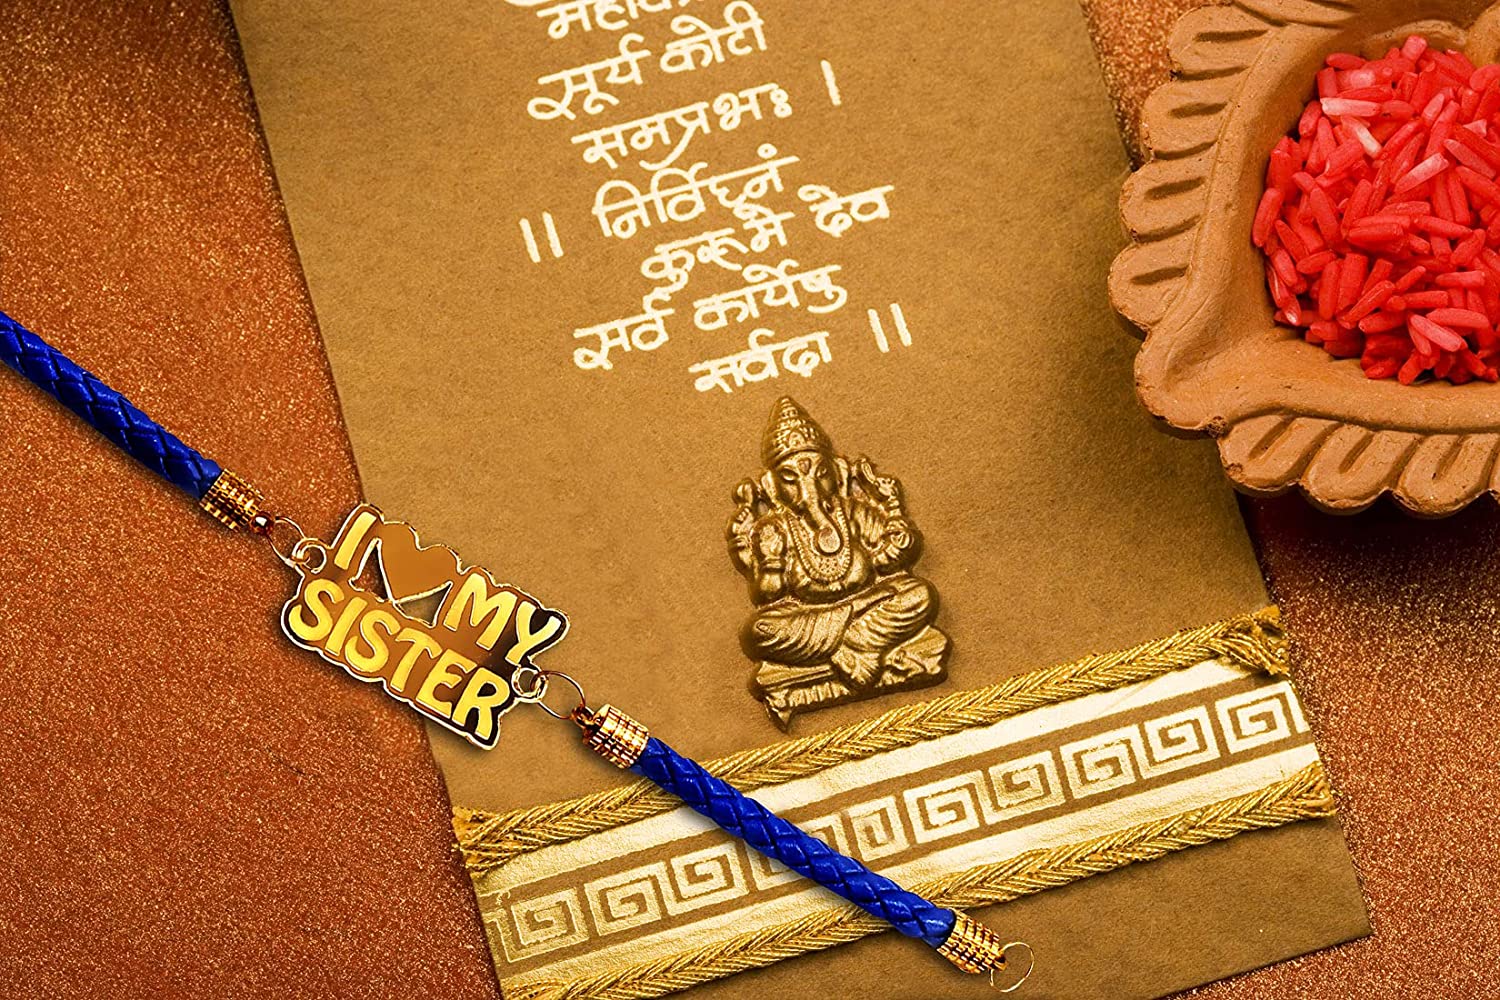 सूर्य कोटी
समप्रभः ।
॥ निर्विघ्नं
कुरूमे देव
सर्व कार्येषु
सर्वदा ॥
I ♥ MY
SISTER